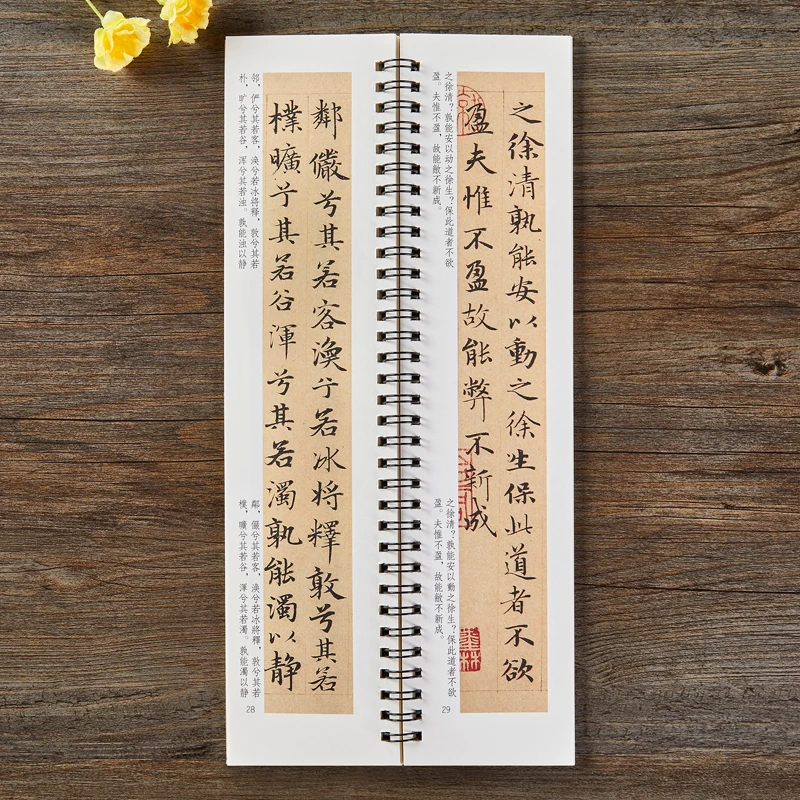 鄰儼兮其若客渙兮若冰将釋敦兮其若
樸曠兮其若谷渾兮其若濁孰能濁以静
邻，俨兮其若客，涣兮若冰将释，敦兮其若
朴，旷兮其若谷，浑兮其若浊。孰能浊以静
鄰，儼兮其若客，渙兮若冰將釋，敦兮其若
樸，曠兮其若谷，渾兮其若濁。孰能濁以静
28
之徐清孰能安以動之徐生保此道者不欲
盈夫惟不盈故能弊不新成
之徐清？孰能安以动之徐生？保此道者不欲
盈。夫惟不盈，故能敝不新成。
之徐清？孰能安以動之徐生？保此道者不欲
盈。夫惟不盈，故能敝不新成。
29